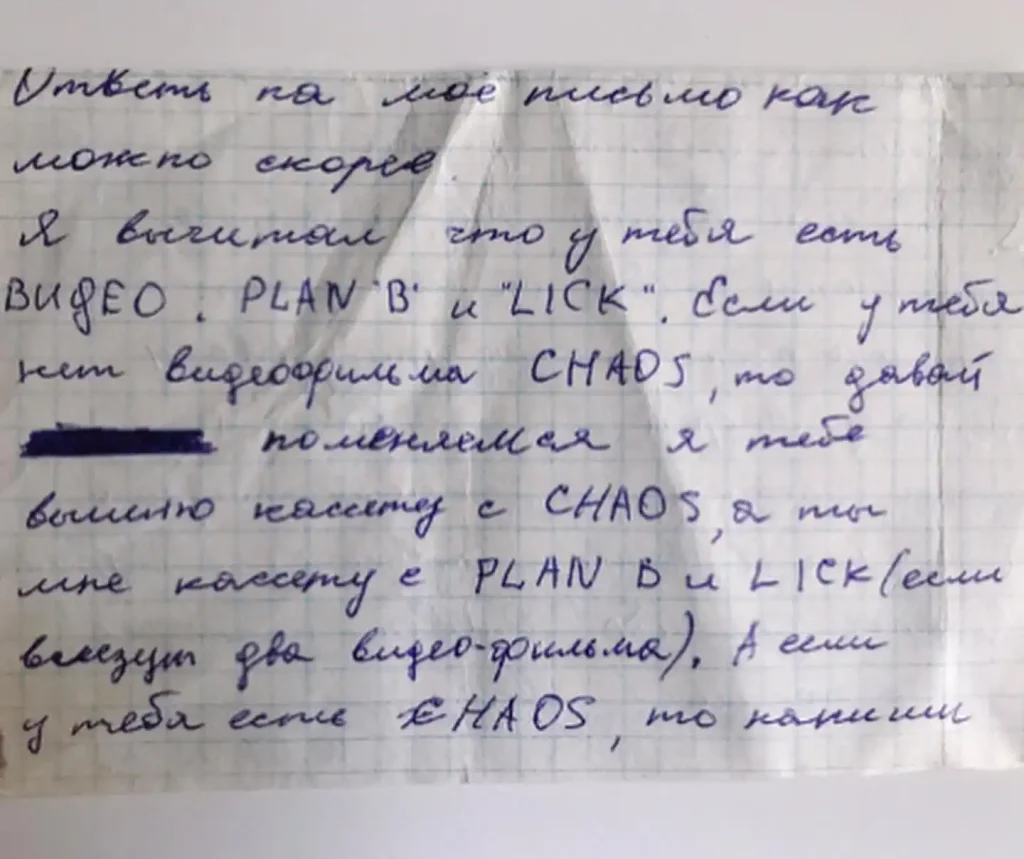 Ответь на моё письмо как
можно скорее.
Я вычитал что у тебя есть
ВИДЕО. PLAN "B" и "LICK". Если у тебя
нет видеофильма CHAOS, то давай
поменяемся я тебе
вышлю кассету с CHAOS, а ты
мне кассету с PLAN B и LICK (если
влезут два видео-фильма). А если
у тебя есть CHAOS, то напиши